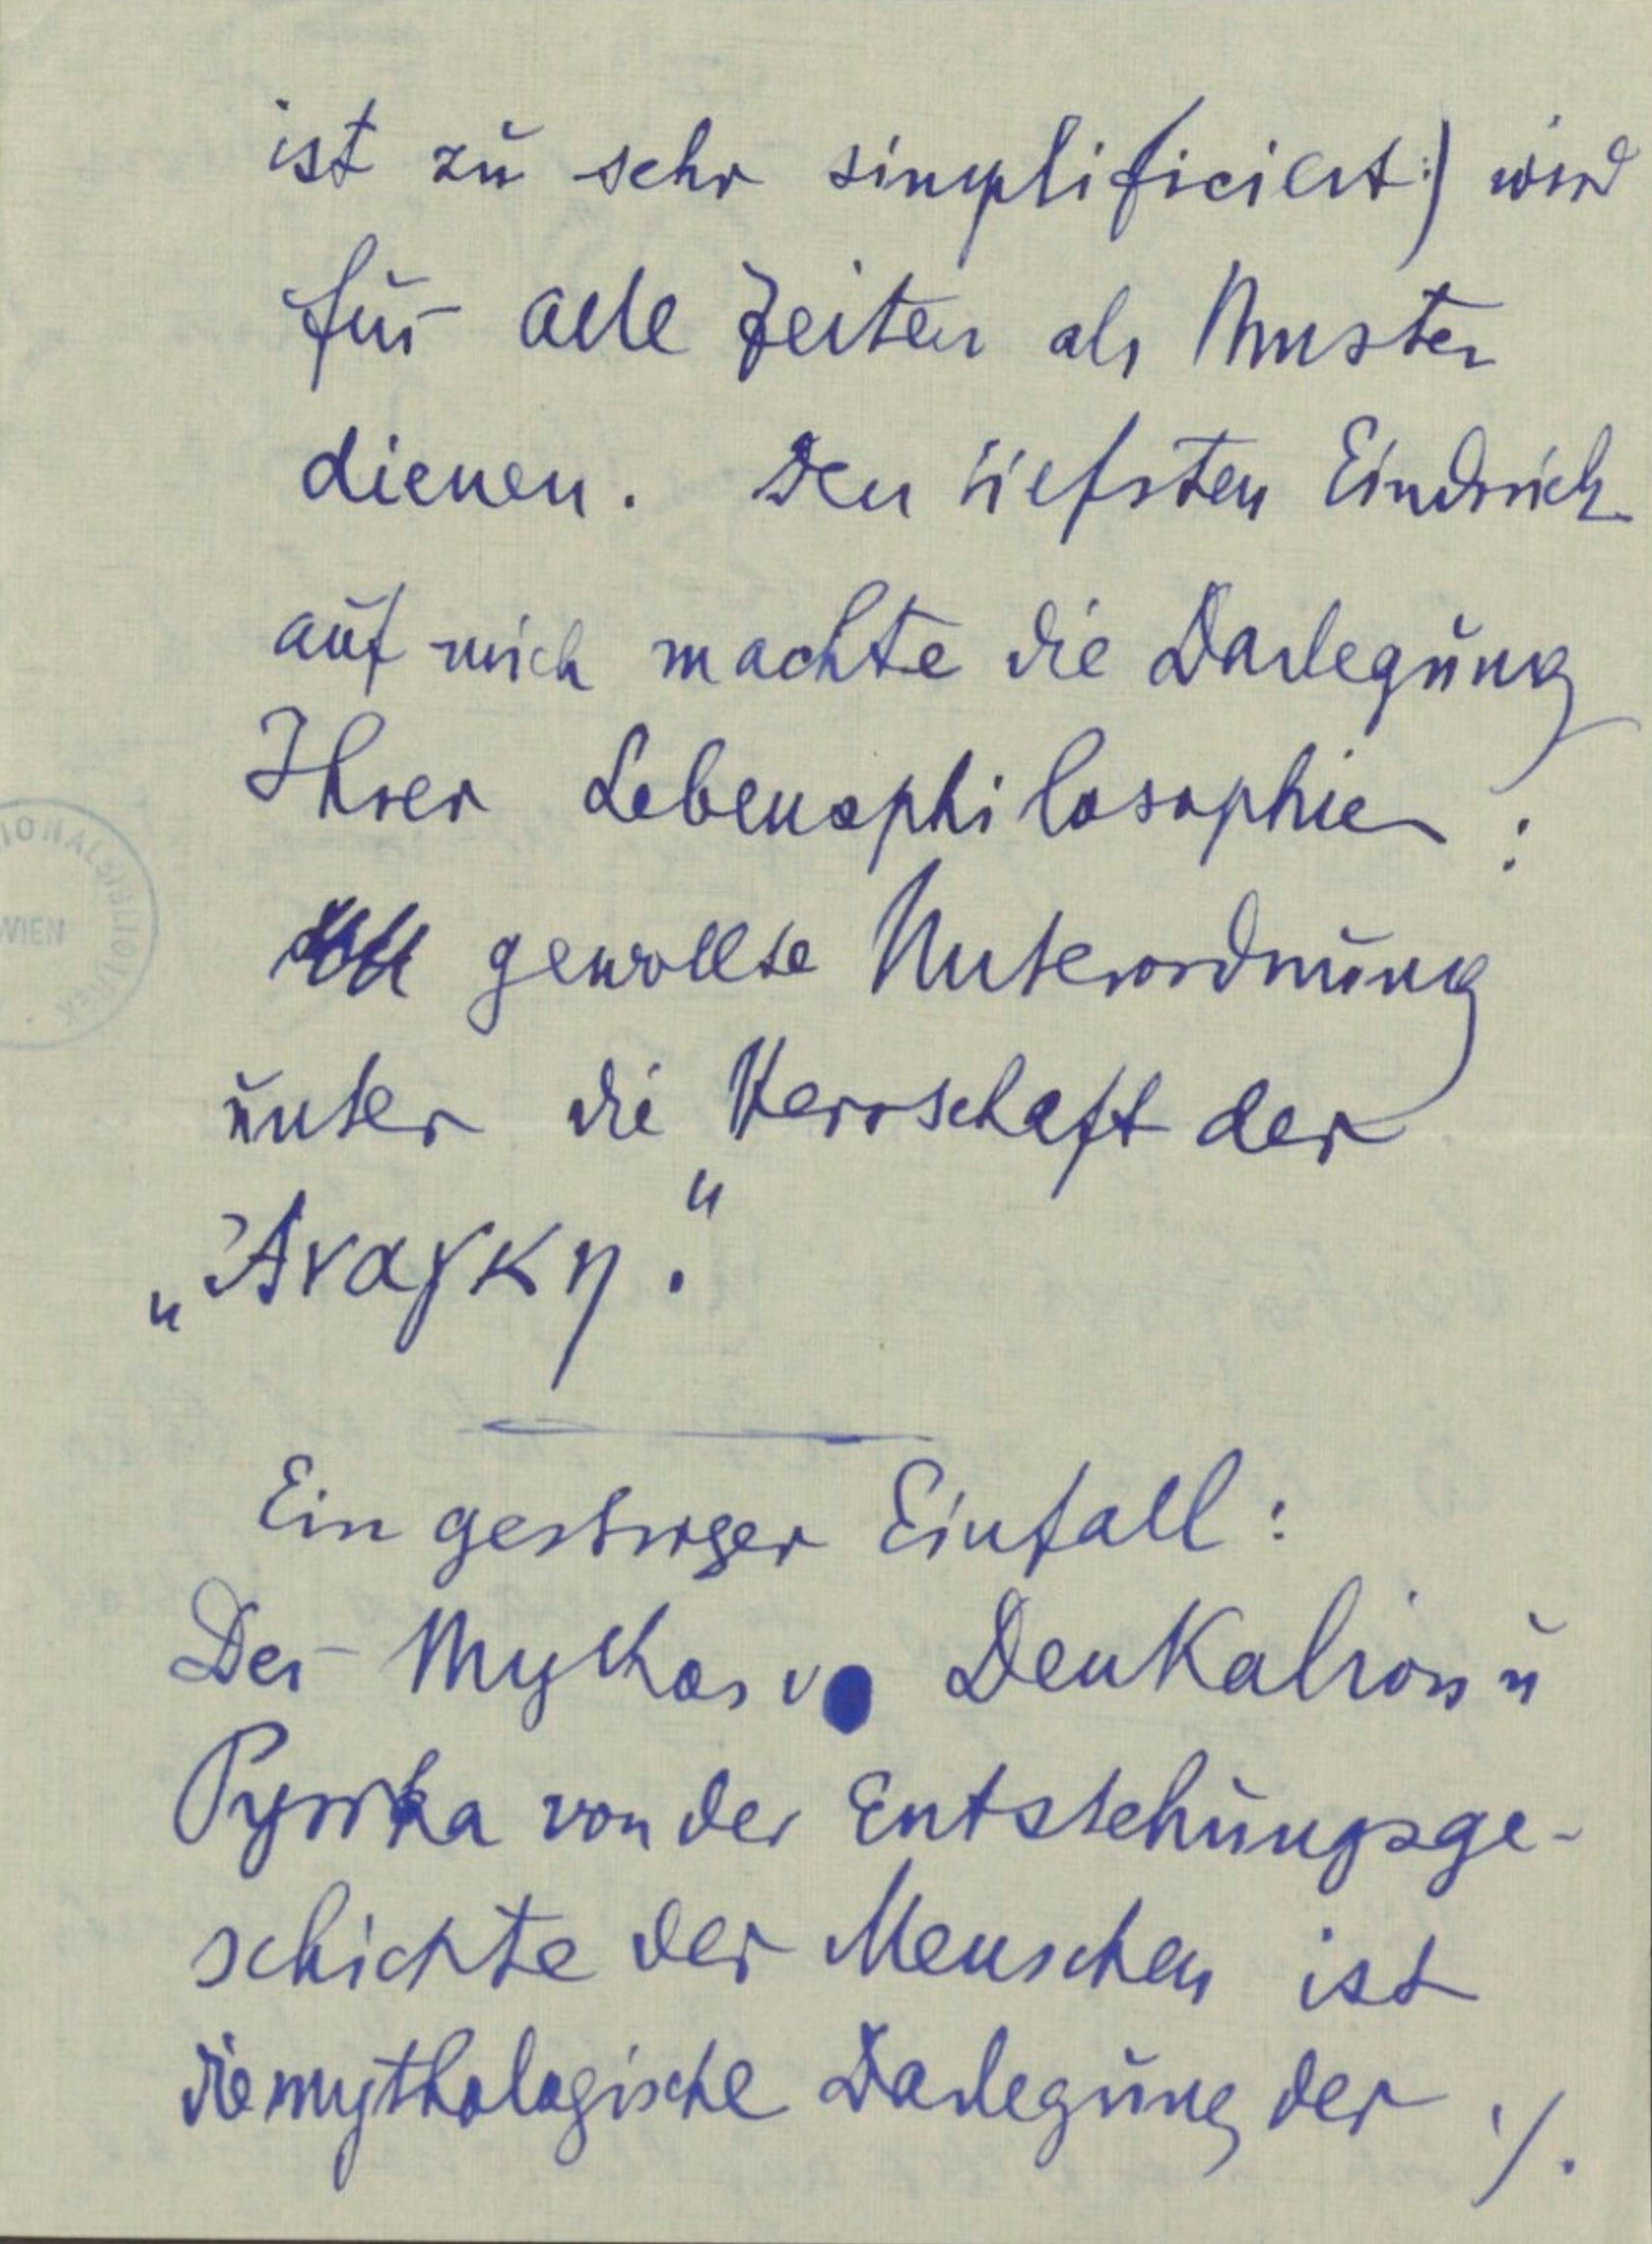 ist zu sehr simplificiert:) wird
für alle Zeiten als Muster
dienen. Den tiefsten Eindruck
auf mich machte die Darlegung
Ihrer Lebensphilosophie:
gewollte Unterordnung
unter die Herrschaft der
„Ἀναγκη."
Ein gestriger Einfall:
Der Mythos v Deukalion u
Pyrrha von der Entstehungsge-
schichte der Menschen ist
die mythologische Darlegung der ./.
IONALBIBLIOTHEK
WIEN